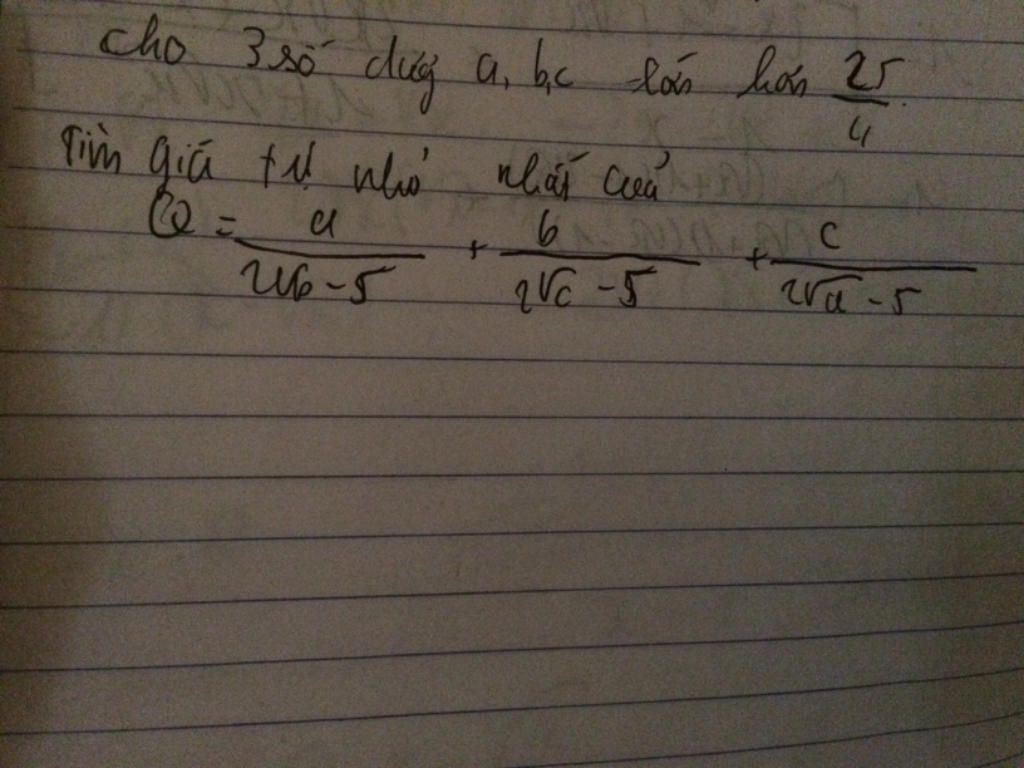 Cho 3 số dưg a, b, c lớn hơn 25/4.
Tìm giá trị nhỏ nhất của
Q = a/(2√b - 5) + b/(2√c - 5) + c/(2√a - 5)